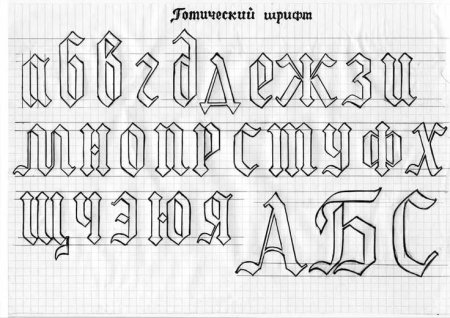 Готический шрифт
абвгддежзи
мнопрстуфх
щчэюя АБС